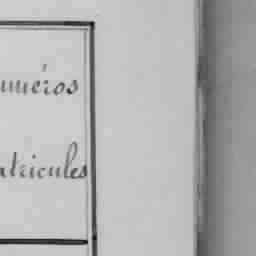 uméros
atricules